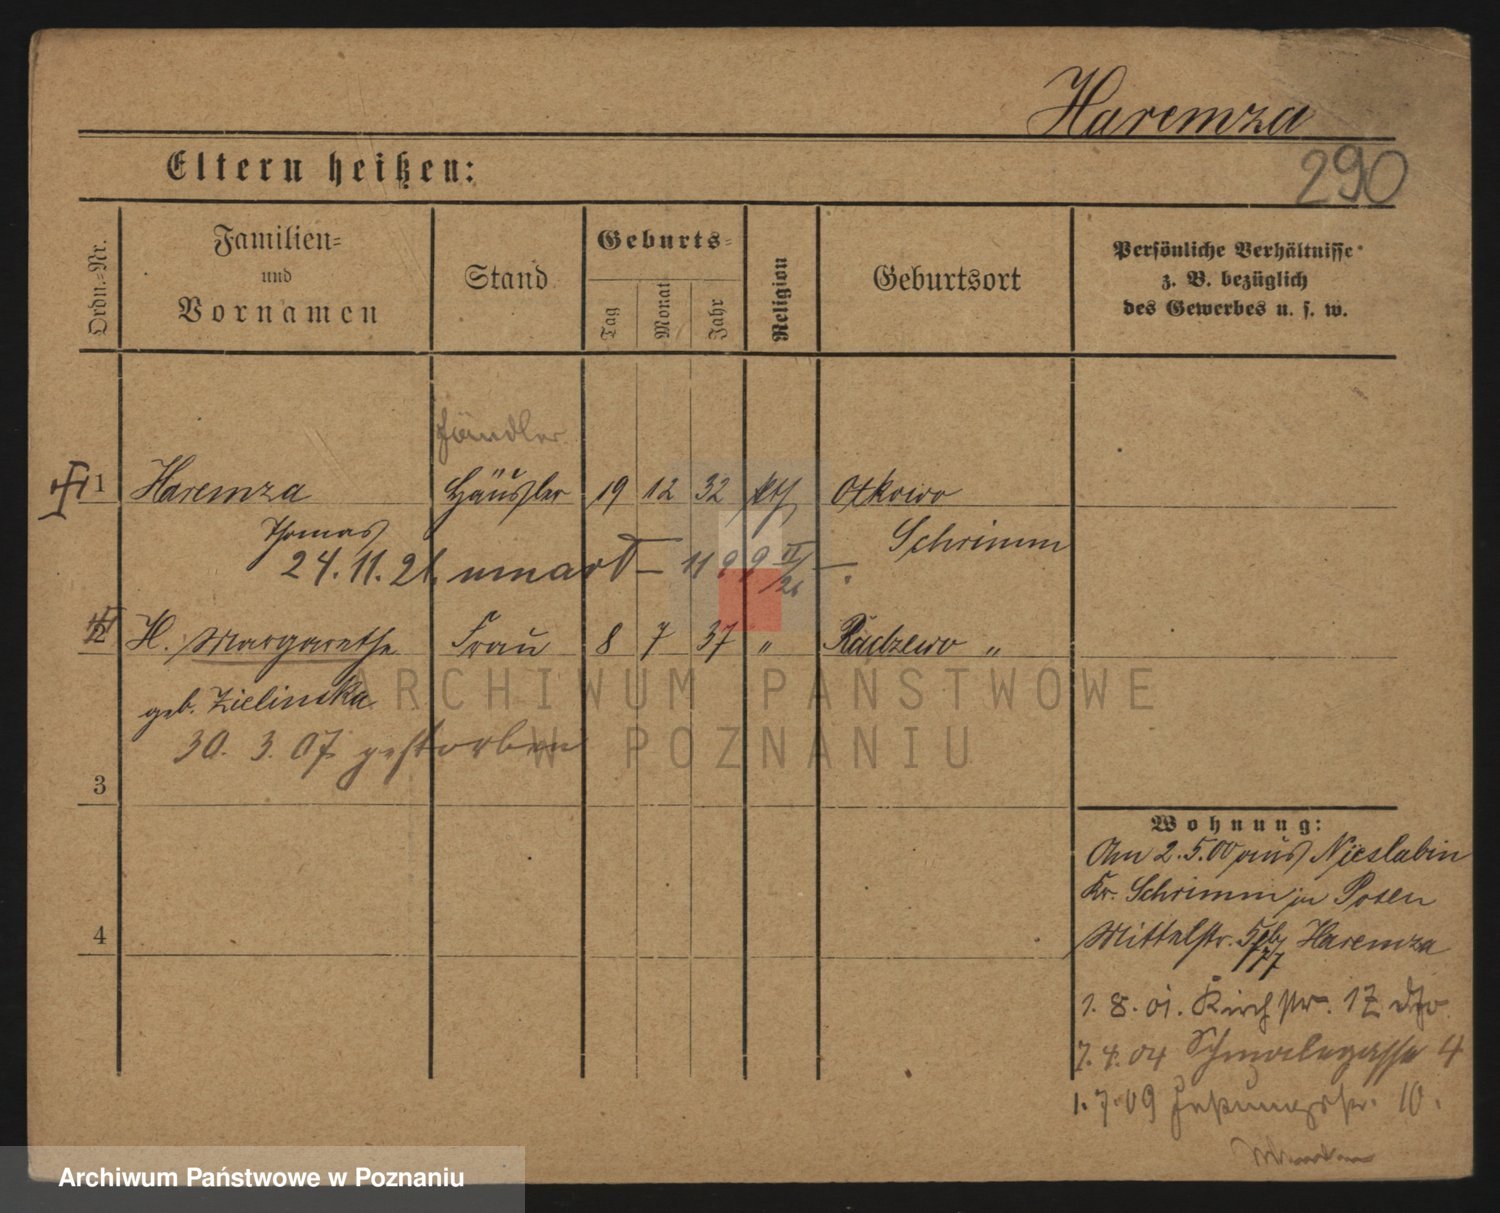 Haremza
290
Eltern heißen:
Ordn.-Nr.
Familien-
und
Vornamen
Stand
Geburts-
Tag
Monat
Jahr
Religion
Geburtsort
Persönliche Verhältnisse
z. B. bezüglich
des Gewerbes u. s. w.
Händler
1 Haremza Häusler 19 12 32 kth Otkowo
Thomas Schrimm
24.11.21.
2 H. Margarethe Frau 8 7 37 " Radzewo "
geb. Zielinska
30. 3. 07 gestorben
3
4
Wohnung:
Am 2.5.00 aus Nieslabin
Kr. Schrimm in Posen
Mittelstr. Haremza
1. 8. 01. Kirchstr. 17
7. 4. 04 4
1. 7. 09 10.
ARCHIWUM PAŃSTWOWE
W POZNANIU
Archiwum Państwowe w Poznaniu